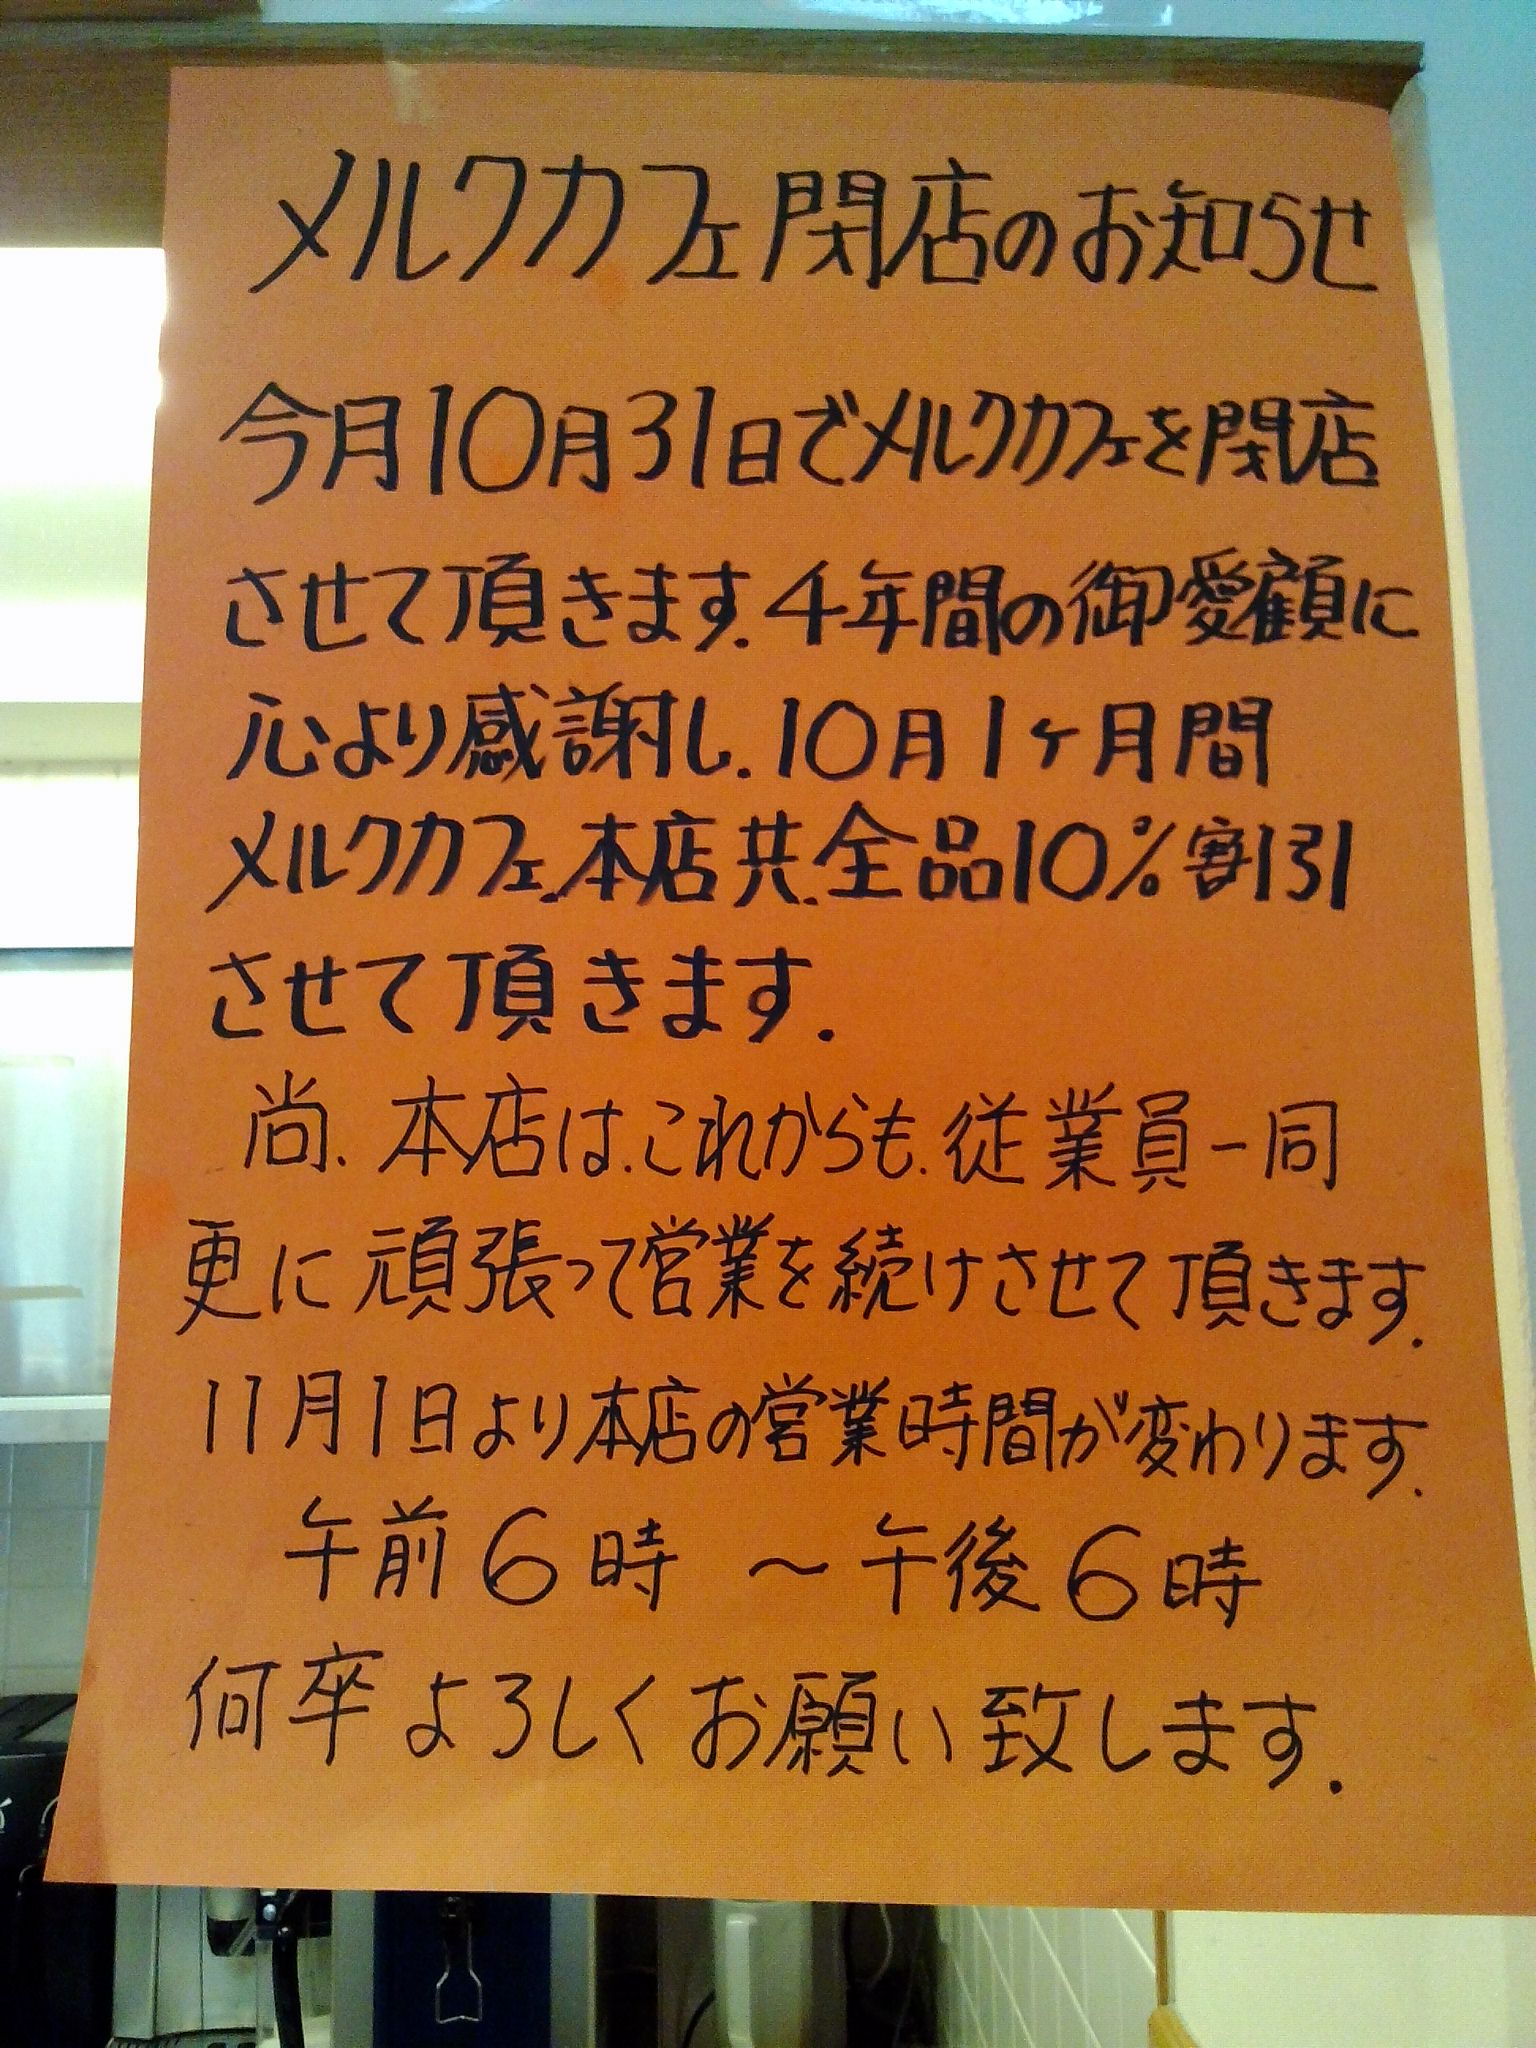 メルクカフェ閉店のお知らせ
今月10月31日でメルクカフェを閉店
させて頂きます.4年間の御愛顧に
心より感謝し.10月1ヶ月間
メルクカフェ.本店共.全品10%割引
させて頂きます.
尚.本店は.これからも.従業員一同
更に頑張って営業を続けさせて頂きます.
11月1日より本店の営業時間が変わります.
午前6時 〜午後6時
何卒よろしくお願い致します.